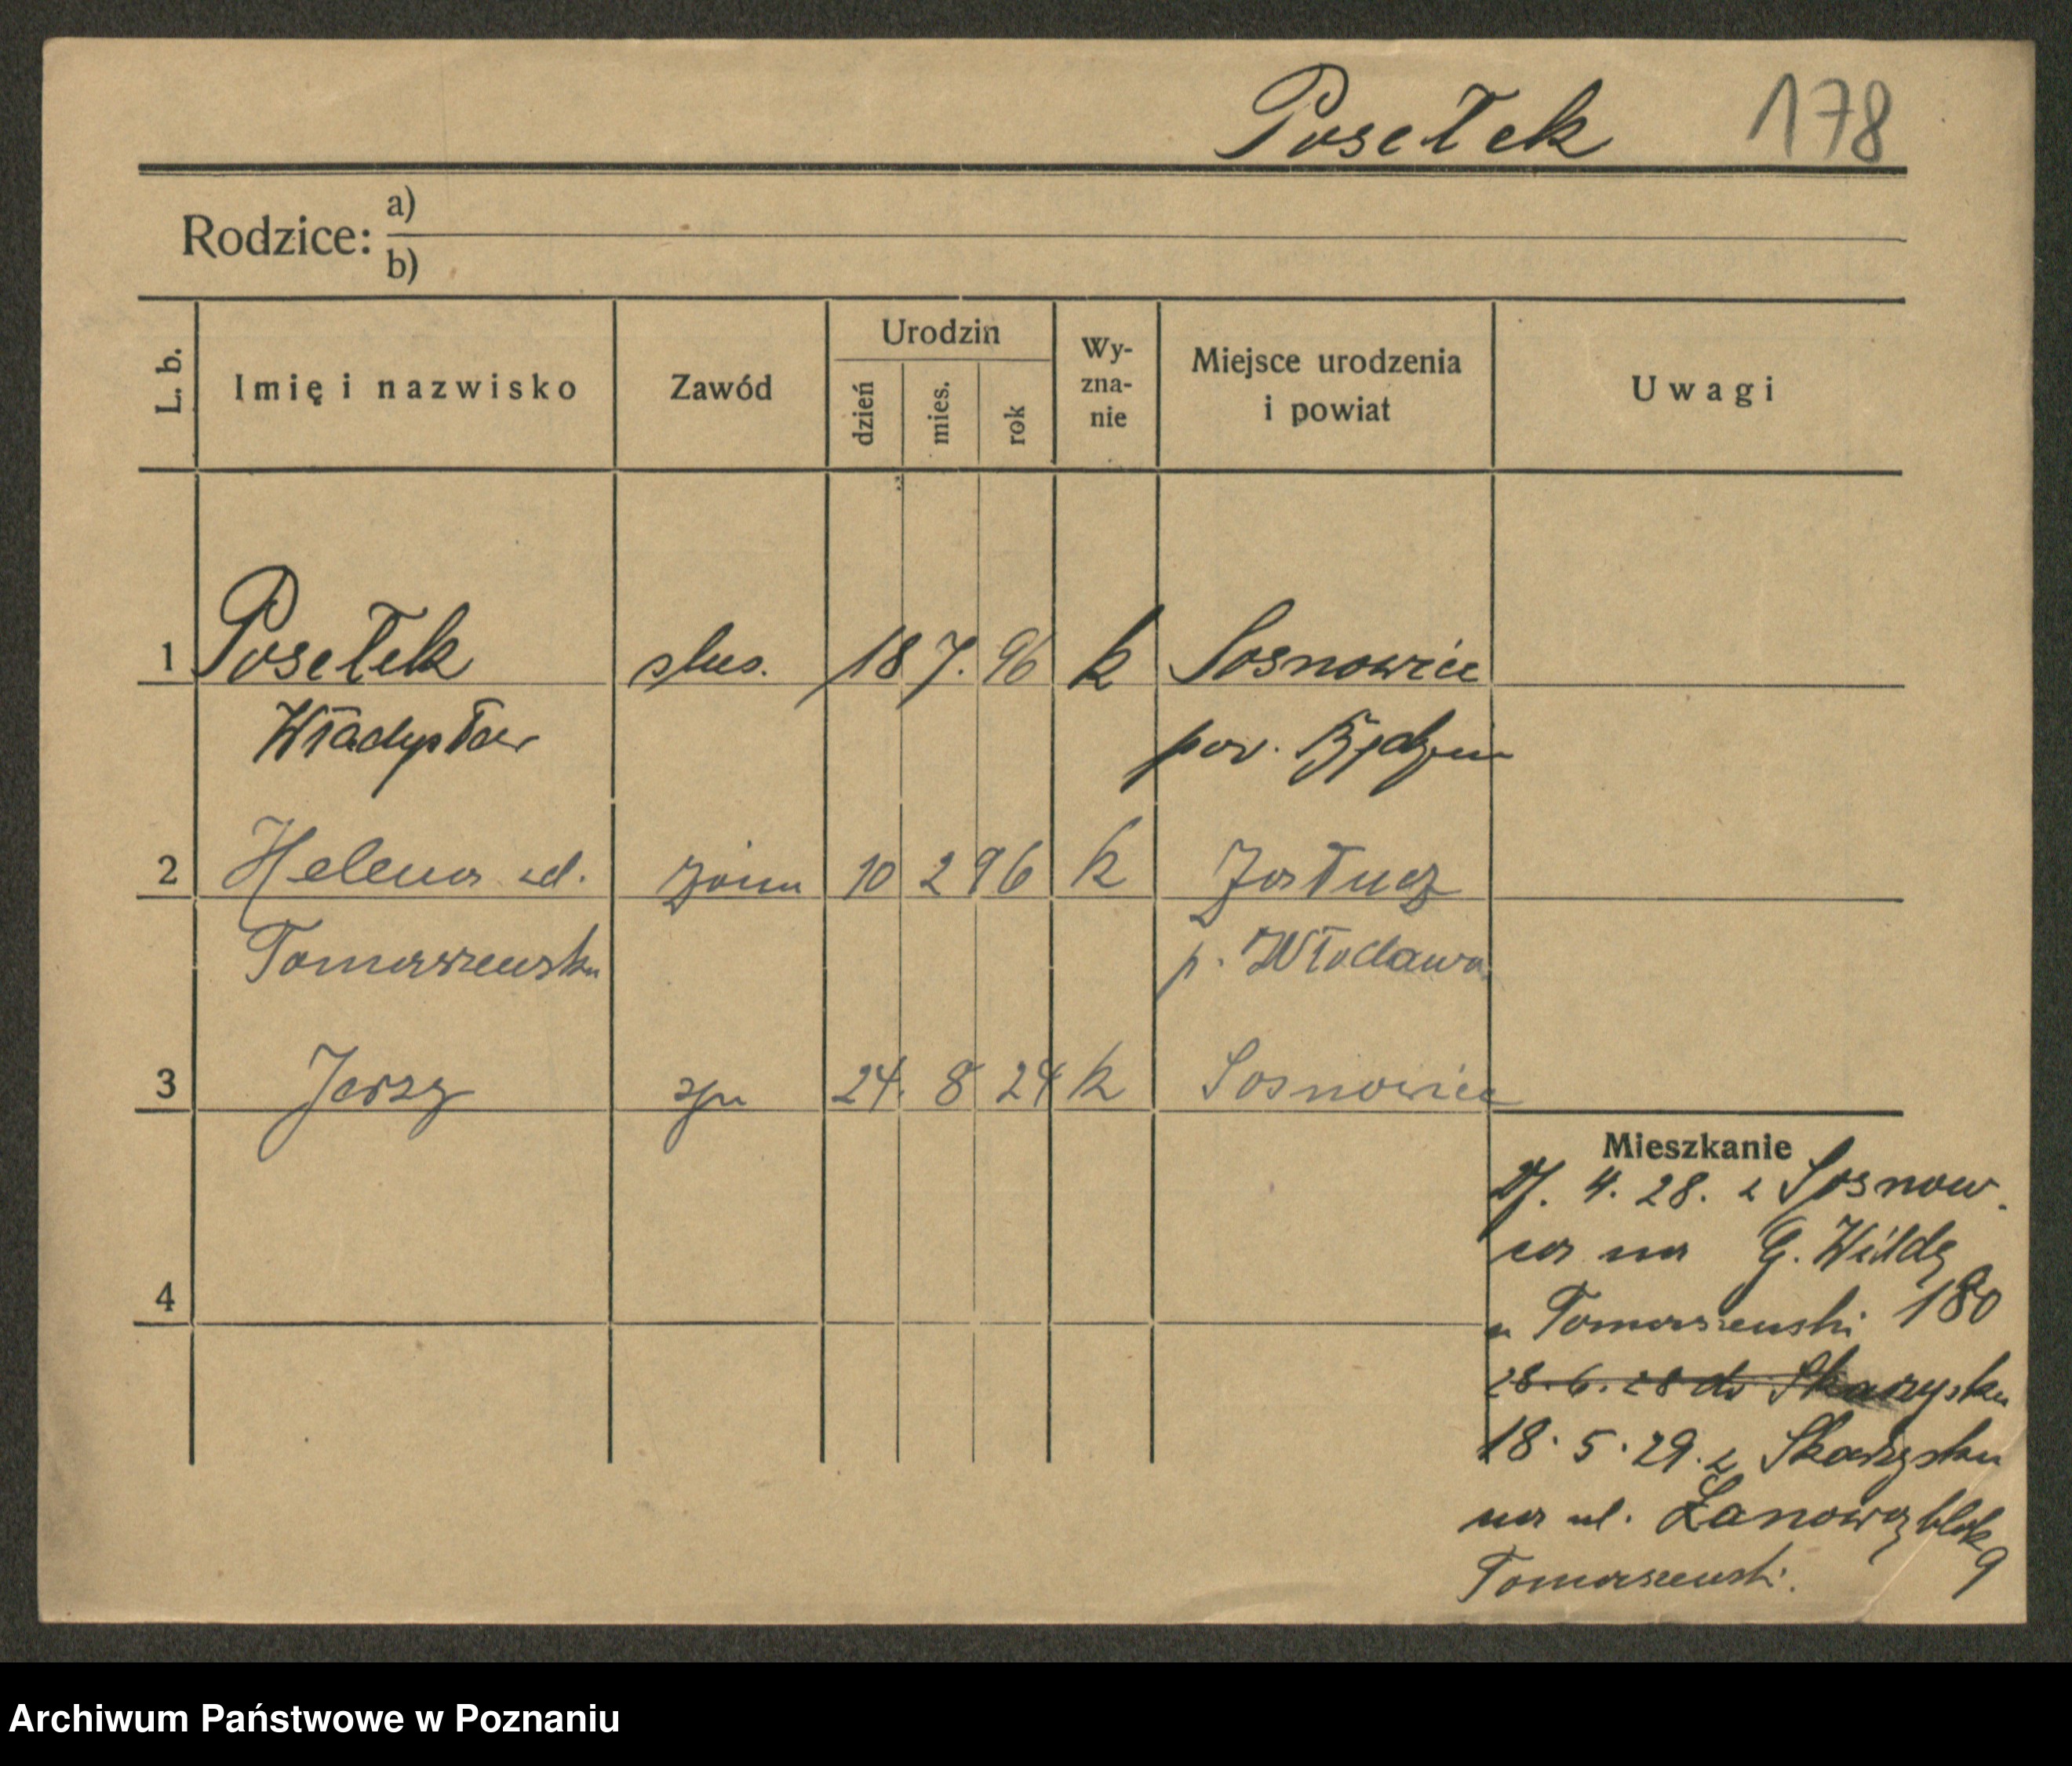 Posełek 178
Rodzice: a)
b)
L. b. Imię i nazwisko Zawód Urodzin dzień mies. rok Wy-zna-nie Miejsce urodzenia i powiat Uwagi
1 Posełek ślus. 18 7. 96 k Sosnowice
Władysław pow. Będzin
2 Helena zd. żona 10 2 96 k
Tomaszewska p. Włodawa
3 Jerzy syn 24. 8 24 k Sosnowice
Mieszkanie
4. 28. z Sosnow.
ca na G. Wildę
4
u Tomaszewski 180
28. 6. 28 do Skarżyska
18. 5. 29. z Skarżyska
na ul. Łanową blok 9
Tomaszewski.
Archiwum Państwowe w Poznaniu